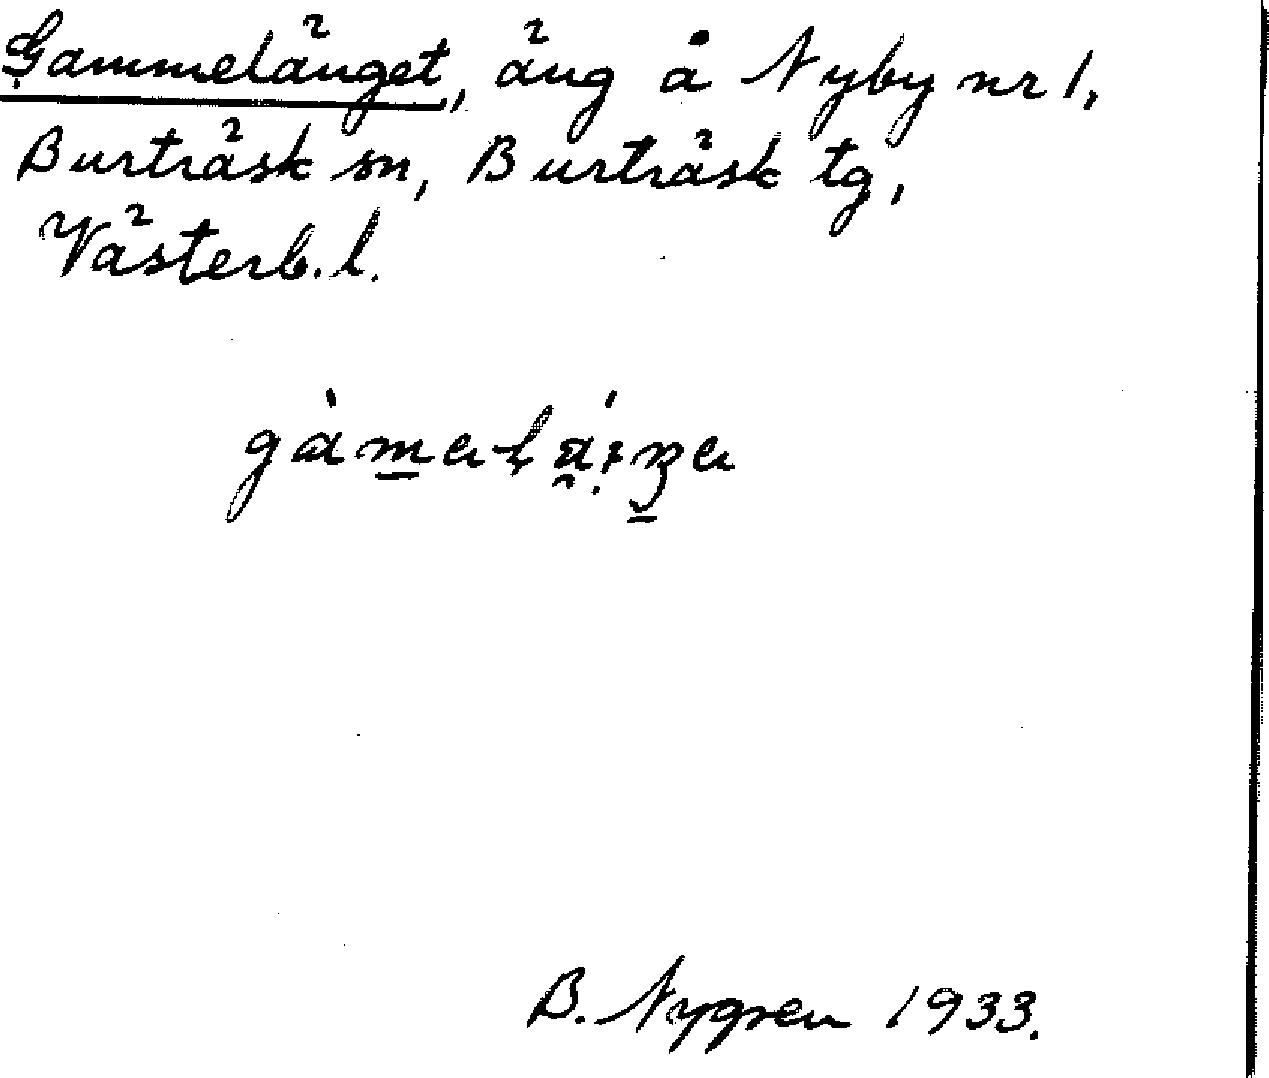 Gammelänget, äng å Nyby nr 1,
Burträsk sn, Burträsk tg,
Västerb. l.
B. Nygren 1933.